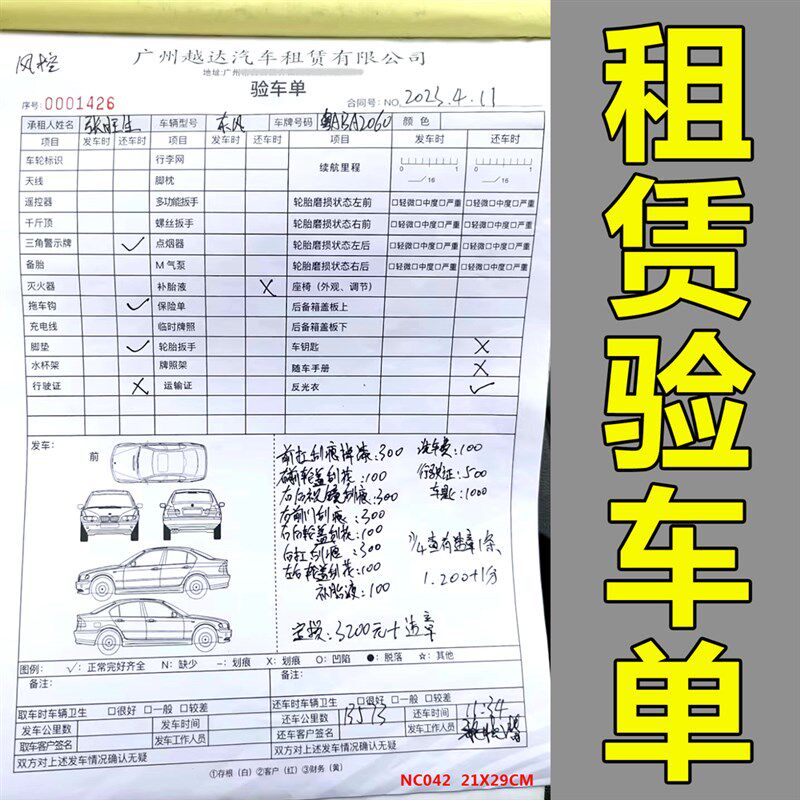 风控
广州越达汽车租赁有限公司
地址:广州
验车单
序号:0001426
合同号:NO. 2023.4.11
承租人姓名 车辆型号 东风 车牌号码 粤ABA2060 颜色
项目 发车时 还车时 项目 发车时 还车时 项目 发车时 还车时
车轮标识 行李网 续航里程 0 1 /16 0 1 /16
天线 脚枕
遥控器 多功能扳手 轮胎磨损状态左前 □轻微□中度□严重 □轻微□中度□严重
千斤顶 螺丝扳手 轮胎磨损状态右前 □轻微□中度□严重 □轻微□中度□严重
三角警示牌 ✓ 点烟器 轮胎磨损状态左后 □轻微□中度□严重 □轻微□中度□严重
备胎 M气泵 轮胎磨损状态右后 □轻微□中度□严重 □轻微□中度□严重
灭火器 补胎液 X 座椅（外观、调节）
拖车钩 ✓ 保险单 后备箱盖板上
充电线 临时牌照 后备箱盖板下
脚垫 ✓ 轮胎扳手 车钥匙 X
水杯架 牌照架 随车手册 X
行驶证 X 运输证 反光衣 ✓
发车: 前
前杠刮痕掉漆:300 洗车费:100
右前轮盖刮花:100 行驶证:500
右后视镜刮痕:300 车匙:1000
右前门刮痕:300
右后轮盖刮花:100
后杠刮痕:300
左后轮盖刮花:100
补胎液:100
查有违章1条、
1.200+1分
定损:3200元+违章
图例: √:正常完好齐全 N:缺少 -:划痕 X:划痕 O:凹陷 ●:脱落 ☆:其他
备注: 备注:
取车时车辆卫生 □很好 □一般 □较差 还车时车辆卫生 □很好 □一般 □较差
发车公里数 发车时间 还车公里数 13513 还车时间 11:34
取车客户签名 发车工作人员 还车客户签名 发车工作人员
双方对上述发车情况确认无疑 双方对上述发车情况确认无疑
①存根（白）②客户（红）③财务（黄）
NC042 21X29CM
租赁验车单